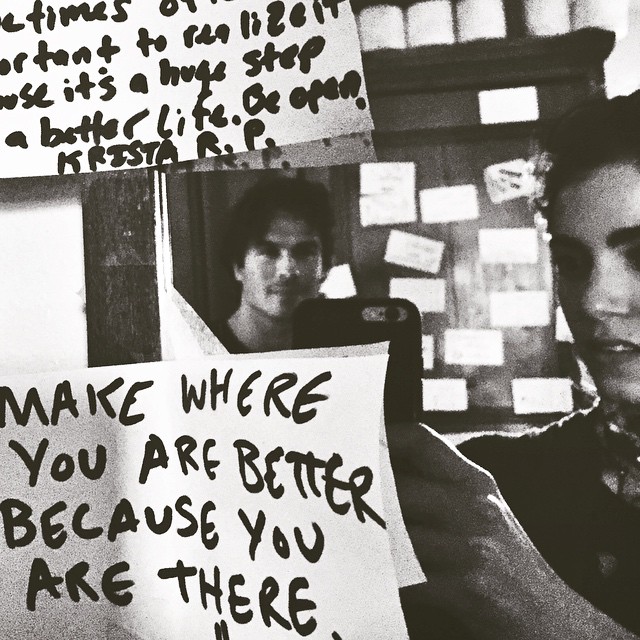 to realize it
it's a huge step
a better life. Be open.
KRISTA R. P.
MAKE WHERE
YOU ARE BETTER
BECAUSE YOU
ARE THERE